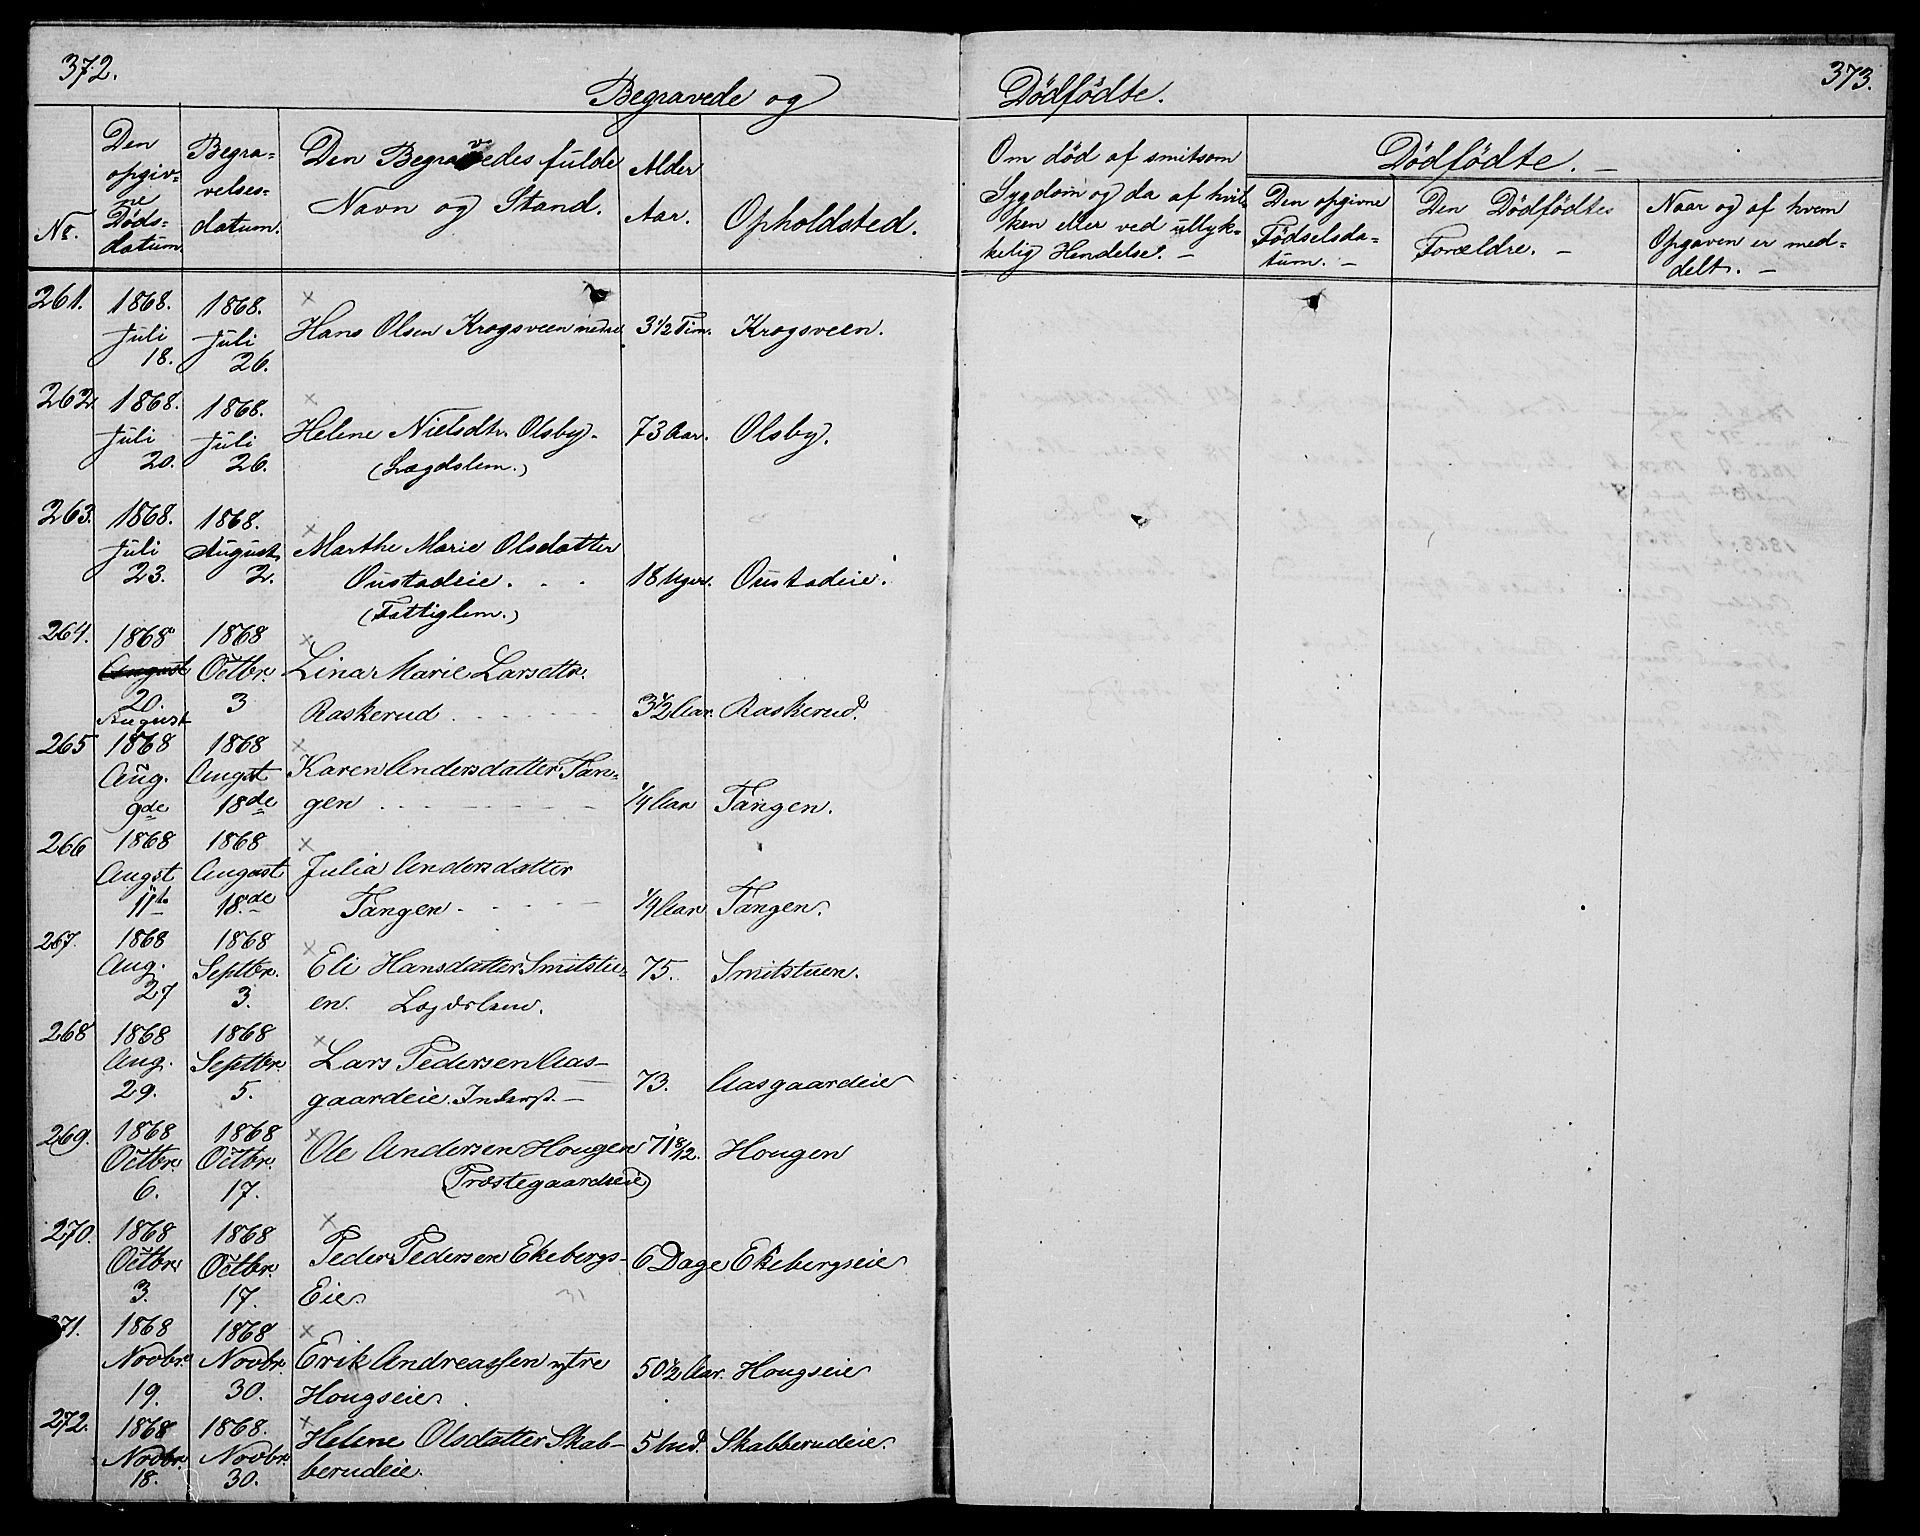 372.
Begravede og
No.
Den opgiv-
ne
Døds-
datum
Begra-
velses-
datum.
Den Begravedes fulde
Navn og Stand.
Alder
Aar.
Opholdsted.
261. 1868. Juli 18. 1868. Juli 26. Hans Olsen Krogsveen nedre 3 1/2 Tim. Krogsveen.
262. 1868. Juli 20. 1868. Juli 26. Helene Nielsdtr. Olsby. 73 Aar. Olsby.
(Lægdslem.)
263. 1868. Juli 23. 1868. August 2. Marthe Marie Olsdatter
Oustadeie. 18 Uger. Oustadeie.
(Fattiglem.)
264. 1868 August 20. August 1868 Octbr. 3 Lina Marie Larsdtr.
Raskerud 3 1/2 Aar. Raskerud.
265 1868 Aug. 9de 1868 Augst 18de Karen Andersdatter Tan-
gen 1/4 Aar Tangen.
266 1868 Augst 11te 1868 August 18.de Julia Andersdatter
Tangen 1/4 Aar Tangen.
267. 1868 Aug. 27 1868 Septbr. 3. Eli Hansdatter Smitstu-
en. Lægdslem. 75. Smitstuen.
268 1868 Aug. 29. 1868 Septbr. 5. Lars Pedersen Aas-
gaardeie. Inderst. 73. Aasgaardeie
269. 1868 Octbr. 6. 1868 Octbr. 17. Ole Andersen Hougen 71 8/12. Hougen
(Præstegaardseie)
270. 1868 Octbr 3. 1868 Octbr. 17. Peder Pedersen Ekebergs-
Eie. 6 Dage Ekebergseie
271. 1868 Novbr. 19. 1868 Novbr. 30. Erik Andreassen ytre
Hougseie. 50 1/2 Aar. Hougseie
272. 1868 Novbr. 18. 1868. Novbr. 30. Helene Olsdatter Skab-
berudeie. 5 Skabberudeie.
373.
Dødfødte.
Om død af smitsom
Sygdom og da af hvil-
ken eller ved ullyk-
kelig Hendelse. -
Dødfødte. -
Den opgivne
Fødselsda-
tum. -
Den Dødfødtes
Forældre. -
Naar og af hvem
Opgaven er med-
delt. -